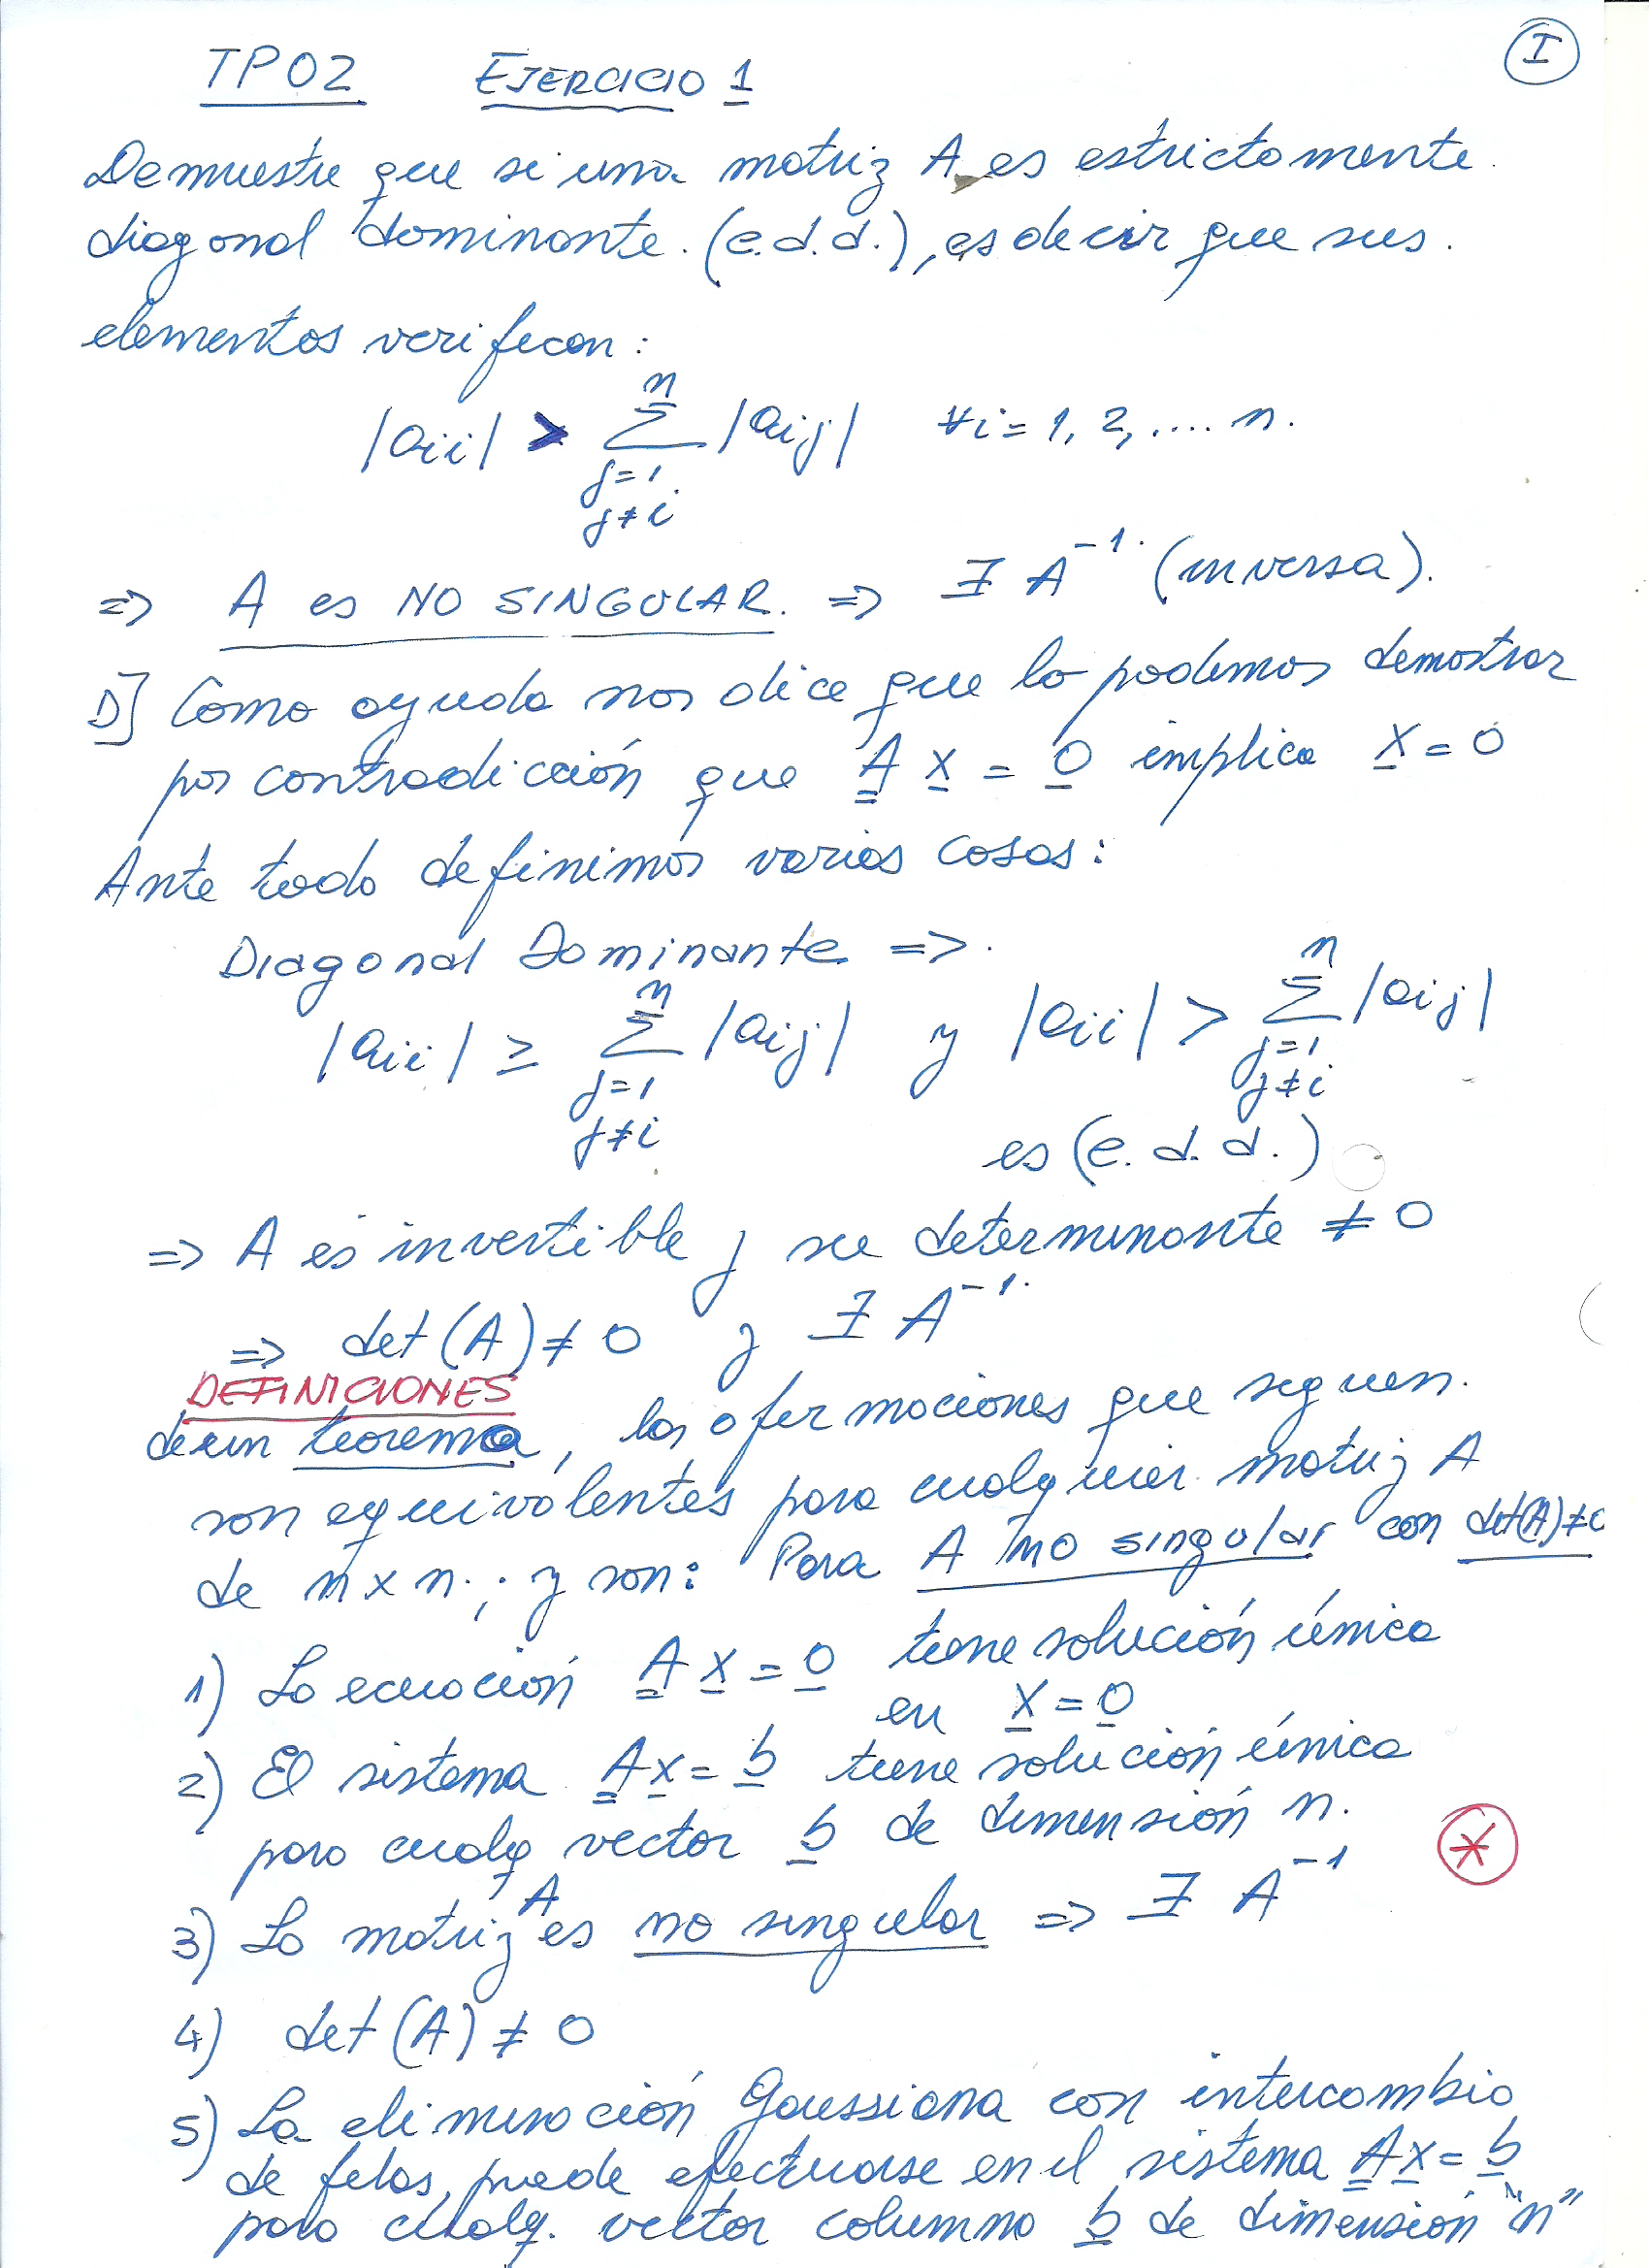 I
TP02 EJERCICIO 1
Demuestre que si una matriz A es estrictamente
diagonal dominante. (e.d.d.), es decir que sus.
elementos verifican:
|aii| > n∑j=1 j≠i |aij| ∀i = 1, 2, .... n.
=> A es NO SINGULAR. => ∃ A⁻¹ (inversa).
D] Como ayuda nos dice que lo podemos demostrar
por contradicción que A x = 0 implica x = 0
Ante todo definimos varias cosas:
Diagonal Dominante =>.
|aii| ≥ n∑j=1 j≠i |aij| y |aii| > n∑j=1 j≠i |aij|
es (e.d.d.)
=> A es invertible y su determinante ≠ 0
=> det (A) ≠ 0 y ∃ A⁻¹
DEFINICIONES
de un teorema, las afirmaciones que siguen.
son equivalentes para cualquier matriz A
de n x n.; y son: Para A no singular con det(A)≠0
1) La ecuación A x = 0 tiene solución única
en x = 0
2) El sistema A x = b tiene solución única
para cualq vector b de dimensión n.
*
3) La matriz A es no singular => ∃ A⁻¹
4) det (A) ≠ 0
5) La eliminación Gaussiana con intercambio
de filas, puede efectuarse en el sistema A x = b
para cualq. vector columna b de dimensión "n"